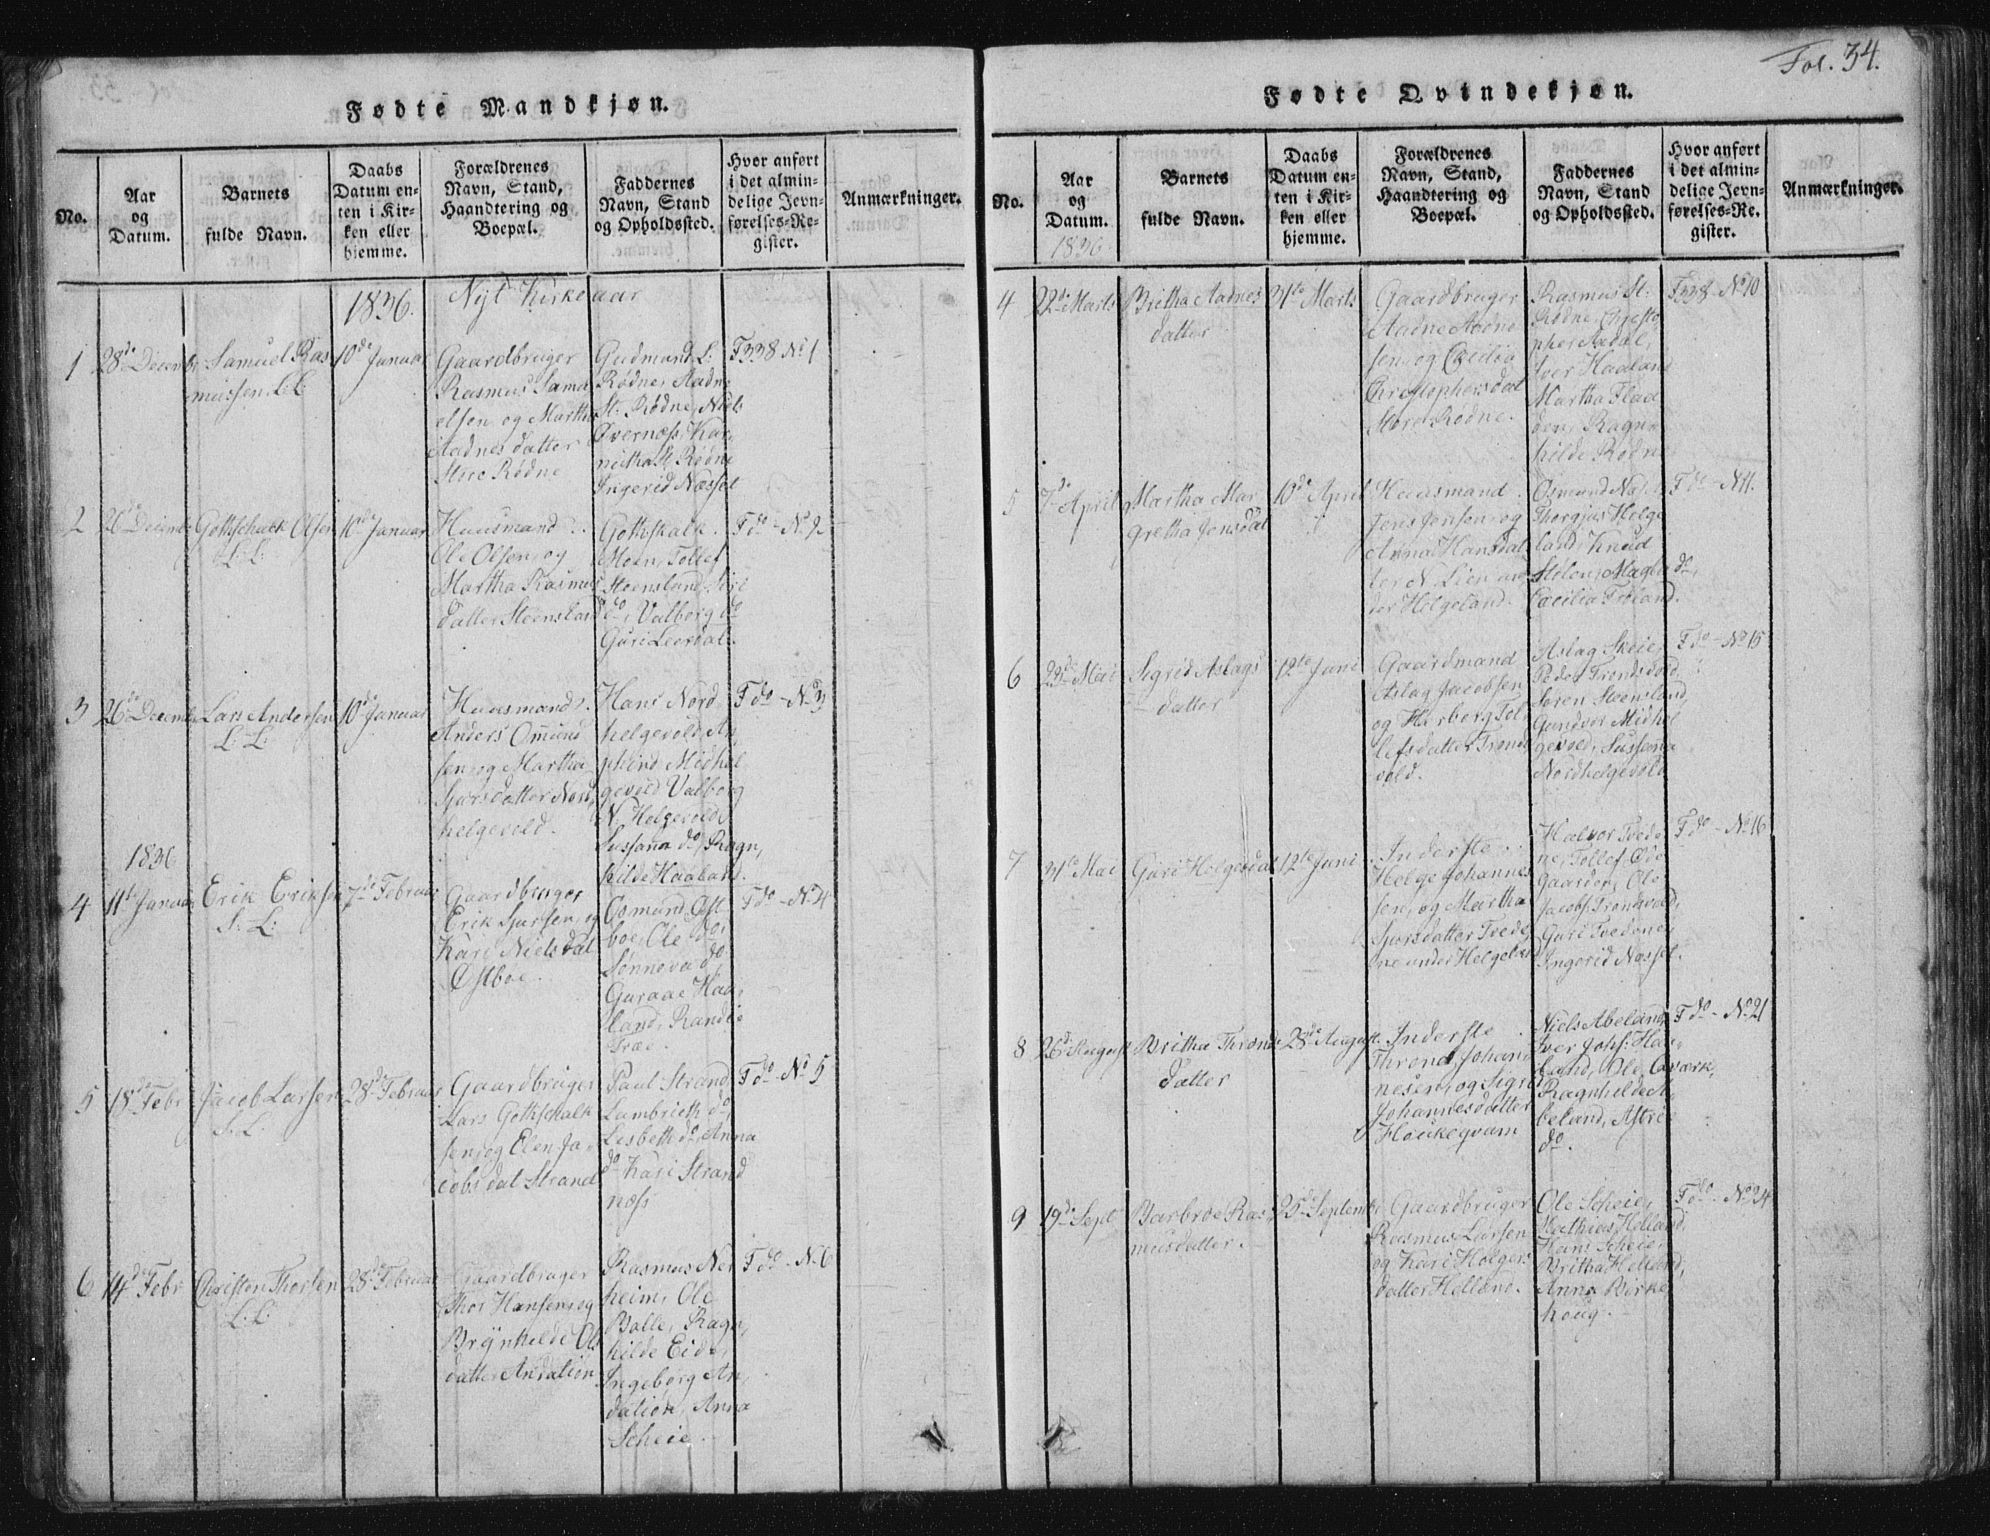 Fol. 34.
Fødte Mandkjøn.
No.
Aar
og
Datum.
Barnets
fulde Navn.
Daabs
Datum en-
ten i Kir-
ken eller
hjemme.
Forældrenes
Navn, Stand,
Haandtering og
Boepæl.
Faddernes
Navn, Stand
og Opholdssted.
Hvor anført
i det almin-
delige Jevn-
førelses-Re-
gister.
Anmærkninger.
1836. Nyt Kirkeaar
1
28de Decembr
Samuel Ras
mussen. L:L:
10de Januar
Gaardbruger
Rasmus Samu
elsen og Martha
Aadnesdatter
Store Rødne
Gudmund L:
Rødne, Aadne
St: Rødne, Niels
Øvernæss, Kar,
nitha St: Rødne
Ingerid Næsset
F338 No 1
2
26de Decembr
Gothschalk Olsen
L: L:
10de Januar
Huusmand
Ole Olsen og
Martha Rasmus
datter Steensland
Gothskalk
Moen, Tollef
Steensland, Siri
do, Valborg do
Guri Leerdal.
F do - No 2
3
26de Decembr
Lars Andersen
L: L:
10de Januar
Huusmand
Anders Omund
sen og Martha
Sjursdatter Nord,
helgevold.
Hans Nord,
helgevold, An
phind Midhel
gevold Valborg
N. Helgevold
Susana do, Ragn,
hilde Haaland.
F do - No 3
1836
4
11te Januar
Erik Eriksen
S: L:
7de Februar
Gaardbruger
Erik Sjursen, og
Kari Nielsdat
Østboe.
Osmund Øst
boe, Ole do,
Sønneva do
Guraae Haa,
land, Randie
Træe.
F do - No 4
5
18de Febr
Jacob Larsen
S. L:
28de Februar
Gaardbruger
Lars Gothschalk
sen, og Elen Ja,
cobsdat Strand
Paul Strand
Lambricth do,
Lisbeth do, Anna
do Kari Strand
næss
F do - No 5
6
14de Febr
Christen Thorsen
L: L:
28de Februar
Gaardbruger
Thor Hansen, og
Brynhilde Ols
datter Andalion
Rasmus Ner
heim, Ole
Bolle, Ragn,
hilde Eide,
Ingeborg An
dalion, Anna
Scheie.
F do - No 6
Fødte Qvindekjøn.
No.
Aar
og
Datum.
1836
Barnets
fulde Navn.
Daabs
Datum en-
ten i Kir-
ken eller
hjemme.
Forældrenes
Navn, Stand,
Haandtering og
Boepæl.
Faddernes
Navn, Stand
og Opholdssted.
Hvor anført
i det almin-
delige Jevn-
førelses-Re-
gister.
Anmærkninger.
4
22de Marts
Britha Aadnes
datter
31te Marts
Gaardbruger
Aadne Aadne
sen, og Cæcilia
Christophersdat
Store Rødne.
Rasmus St:
Rødne, Christo
pher Aadal,
Iver Haaland
Martha Flad
den, Ragn,
hilde Rødne
F338 - No 10
5
7de April
Martha Mar
gretha Jensdat
10de April
Huusmand
Jens Jensen, og
Anna Hansdat
ter N. Lien un
der Helgeland.
Osmund
Thorgjus Helge
land, Knud
Stølen, Magla do,
Cæcilia Tesland.
F do - No 11.
6
23de Mai
Sigrid Aslags
datter
12te Juni
Gaardmand
Aslag Jacobsen
og Herborg Tol
lefsdatter Trond
vold.
Aslag Skeie,
Peder Trondsvold,
Søren Steensland,
Gundvor Midhel
gevold, Sussanna
Nordhelgevold
F do - No 15
7
31te Mai
Guri Helgesdat
12te Juni
Inderste
Helge Johannes
sen, og Martha
Sjursdatter Tvede
ne under Helgeland
Halvor Tvede
ne, Tollef Øde
gaarden, Ole
Jacobs. Trondvold,
Guri Tvedene,
Ingerid Næsset.
F do - No 16
8
26de August
Britha Thronds
datter
28de August
Inderste
Thrond Johan,
nesen, og Sigri
Johannesdatter
Houkeqvam
Niels Abeland,
Iver Johs: Haa,
land, Ole Qværk,
Ragnhilde A,
beland, Astri
do.
F do - No 21
9
19de Sept
Barbroe Ras,
musdatter.
25de Septembr
Gaardbruger
Rasmus Larsen
og Kari Holger
datter Helland.
Ole Scheie,
Mathias Helland,
Hans Scheie,
Britha Helland,
Anna Birke
houg.
F do - No 24